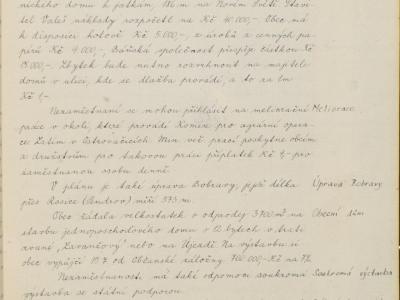 nického domu k jatkám, M.m na Novém Světě. Stavi-
tel Valeš náklady rozpočetl na Kč 40.000,-. Obec má
k disposici hotově Kč 5.000,-, z úroků z cenných pa-
pírů Kč 9.000,-, Báňská společnost přispěje částkou Kč
13.000,-. Zbytek bude nutno rozvrhnout na majitele
domů v ulici, kde se dlažba provádí, a to za 1m
Kč 1,-
Nezaměstnaní se mohou přihlásit na meliorační Meliorace
práce v okolí, které provádí Komise pro agrární opera-
ce v Ostrovačicích Min. veř. prací poskytne obcím
a družstvům pro takovou práci příplatek Kč 4,- pro
zaměstnanou osobu denně.
V plánu je také úprava Bobravy, jejíž délka Úprava Bobravy
přes Rosice (Kendrov) měří 573 m.
Obec žádala velkostatek o odprodej 3700 m² na Obecní dům
stavbu jednoposchoďového domu v 12 bytech v trati
zvané „Zavanečov" nebo na Újezdě. Na výstavbu si
obec vypůjčí od Občanské záložny 700 000.- Kč na
Nezaměstnanosti má také odpomoci soukromá Soukromá výstavba
výstavba se státní podporou.